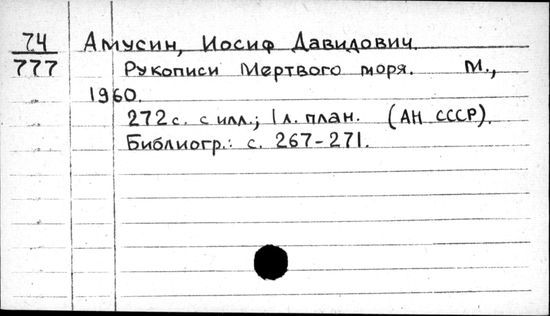 74 Амусин, Иосиф Давидович.
777 Рукописи Мертвого моря. М.,
1960.
272 с. с илл.; 1 л. план. (АН СССР).
Библиогр.: с. 267-271.